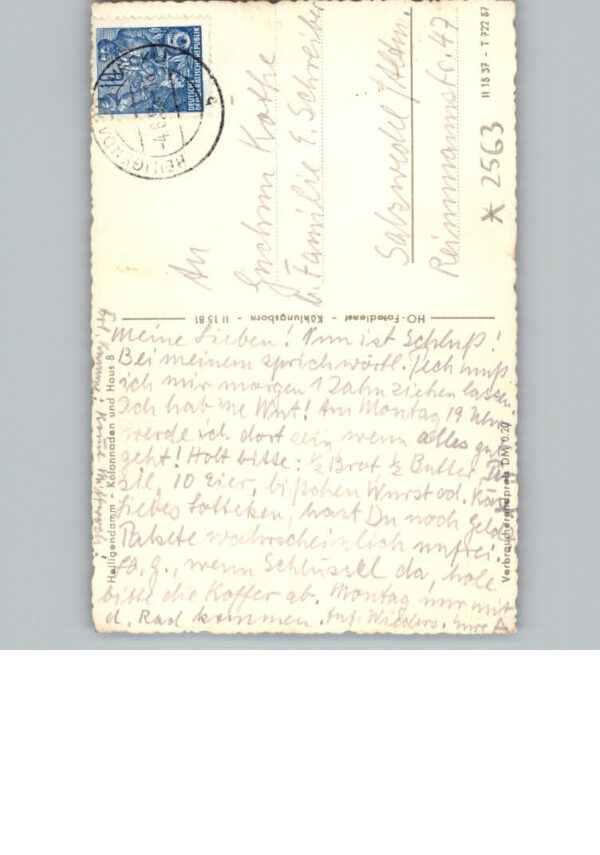 DEUTSCHE
DEMOKRATISCHE REPUBLIK
HEILIGENDAMM
An
Joachim Kothe
b. Familie E. Schreiber
Salzwedel/Altm.
Reimmannstr. 47
II 15 37 - T 722 57
* 2563
HO-Fotodienst - Kühlungsborn - II 1581
Meine Lieben! Nun ist Schluß!
Bei meinem sprichwörtl. Pech muß
ich mir morgen 1 Zahn ziehen lassen.
Ich hab 'ne Wut! Am Montag 19 Uhr
werde ich dort sein wenn alles gut
geht! Holt bitte: ½ Brot ½ Butter
10 Eier, bißchen Wurst od. Käse
liebes Lottchen, hast Du noch Geld?
Pakete wahrscheinlich unfrei.
wenn Schlüssel da, hole
bitte die Koffer ab. Montag nur mit
d. Rad kommen. Auf Wieders. Eure
Heiligendamm - Kolonnaden und Haus 8
Verbraucherendpreis DM 0,20